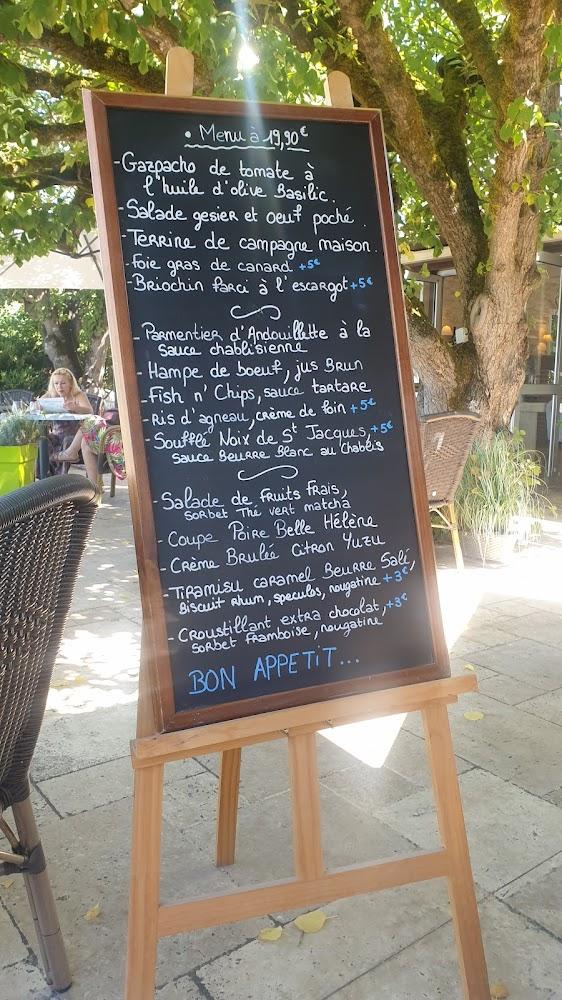 • Menu à 19,90€
-Gazpacho de tomate à
l'huile d'olive Basilic.
-Salade gesier et oeuf poché.
-Terrine de campagne maison.
-Foie gras de canard +5€
-Briochin farci à l'escargot +5€
-Parmentier d'Andouillette à la
sauce chablisienne
-Hampe de boeuf, jus Brun
-Fish n' Chips, sauce tartare
-Ris d'agneau, crème de foin +5€
-Soufflé Noix de St Jacques, +5€
sauce Beurre Blanc au Chablis
-Salade de fruits frais,
sorbet Thé vert matcha
-Coupe Poire Belle Hélène
-Crème Brulée Citron Yuzu
-Tiramisu caramel Beurre Salé,
Biscuit rhum, speculos, nougatine +3€
-Croustillant extra chocolat, +3€
sorbet framboise, nougatine
BON APPETIT...